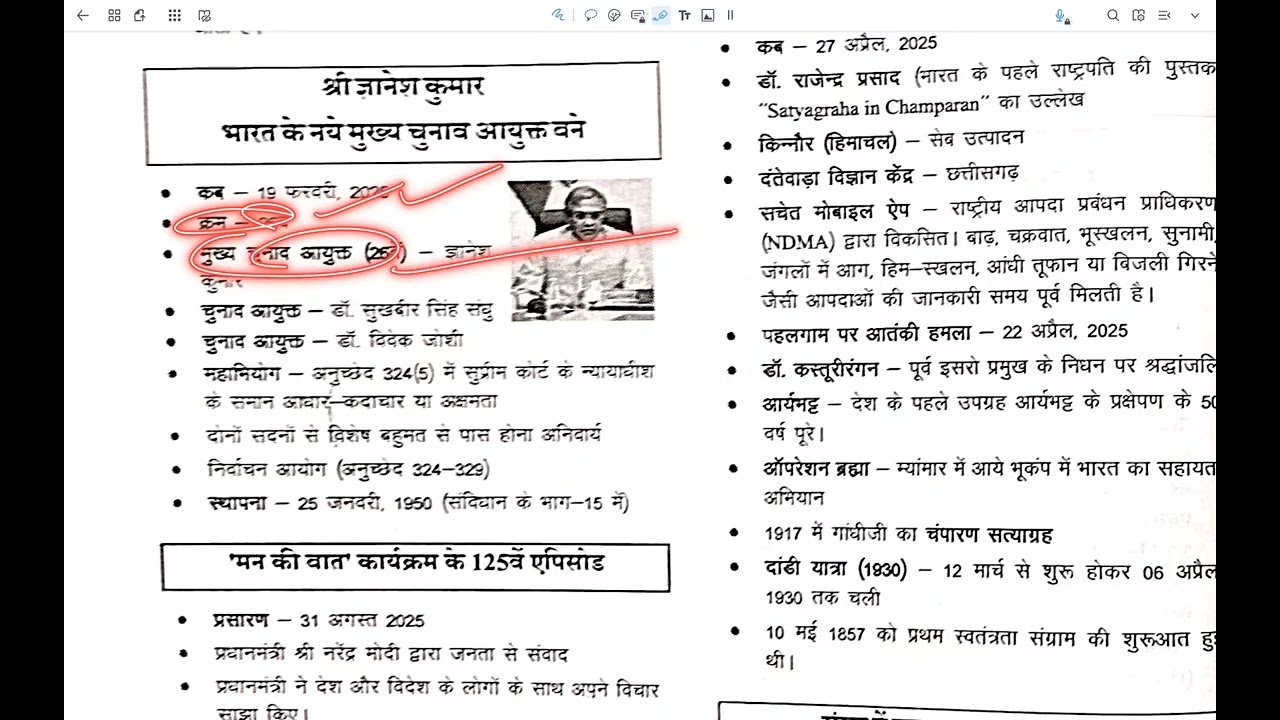 श्री ज्ञानेश कुमार
भारत के नये मुख्य चुनाव आयुक्त बने
• कब – 19 फरवरी, 2025
• क्रम –
• मुख्य चुनाव आयुक्त (26वें) – ज्ञानेश
कुमार
• चुनाव आयुक्त – डॉ. सुखबीर सिंह संधु
• चुनाव आयुक्त – डॉ. विवेक जोशी
• महाभियोग – अनुच्छेद 324(5) में सुप्रीम कोर्ट के न्यायाधीश
के समान आधार–कदाचार या अक्षमता
• दोनों सदनों से विशेष बहुमत से पास होना अनिवार्य
• निर्वाचन आयोग (अनुच्छेद 324-329)
• स्थापना – 25 जनवरी, 1950 (संविधान के भाग–15 में)
'मन की बात' कार्यक्रम के 125वें एपिसोड
• प्रसारण – 31 अगस्त 2025
• प्रधानमंत्री श्री नरेंद्र मोदी द्वारा जनता से संवाद
• प्रधानमंत्री ने देश और विदेश के लोगों के साथ अपने विचार
साझा किए।
• कब – 27 अप्रैल, 2025
• डॉ. राजेन्द्र प्रसाद (भारत के पहले राष्ट्रपति की पुस्तक
"Satyagraha in Champaran" का उल्लेख
• किन्नौर (हिमाचल) – सेब उत्पादन
• दंतेवाड़ा विज्ञान केंद्र – छत्तीसगढ़
• सचेत मोबाइल ऐप – राष्ट्रीय आपदा प्रबंधन प्राधिकरण
(NDMA) द्वारा विकसित। बाढ़, चक्रवात, भूस्खलन, सुनामी,
जंगलों में आग, हिम-स्खलन, आंधी तूफान या बिजली गिरने
जैसी आपदाओं की जानकारी समय पूर्व मिलती है।
• पहलगाम पर आतंकी हमला – 22 अप्रैल, 2025
• डॉ. कस्तूरीरंगन – पूर्व इसरो प्रमुख के निधन पर श्रद्धांजलि
• आर्यभट्ट – देश के पहले उपग्रह आर्यभट्ट के प्रक्षेपण के 50
वर्ष पूरे।
• ऑपरेशन ब्रह्मा – म्यांमार में आये भूकंप में भारत का सहायत
अभियान
• 1917 में गांधीजी का चंपारण सत्याग्रह
• दांडी यात्रा (1930) – 12 मार्च से शुरू होकर 06 अप्रैल
1930 तक चली
• 10 मई 1857 को प्रथम स्वतंत्रता संग्राम की शुरूआत हुई
थी।